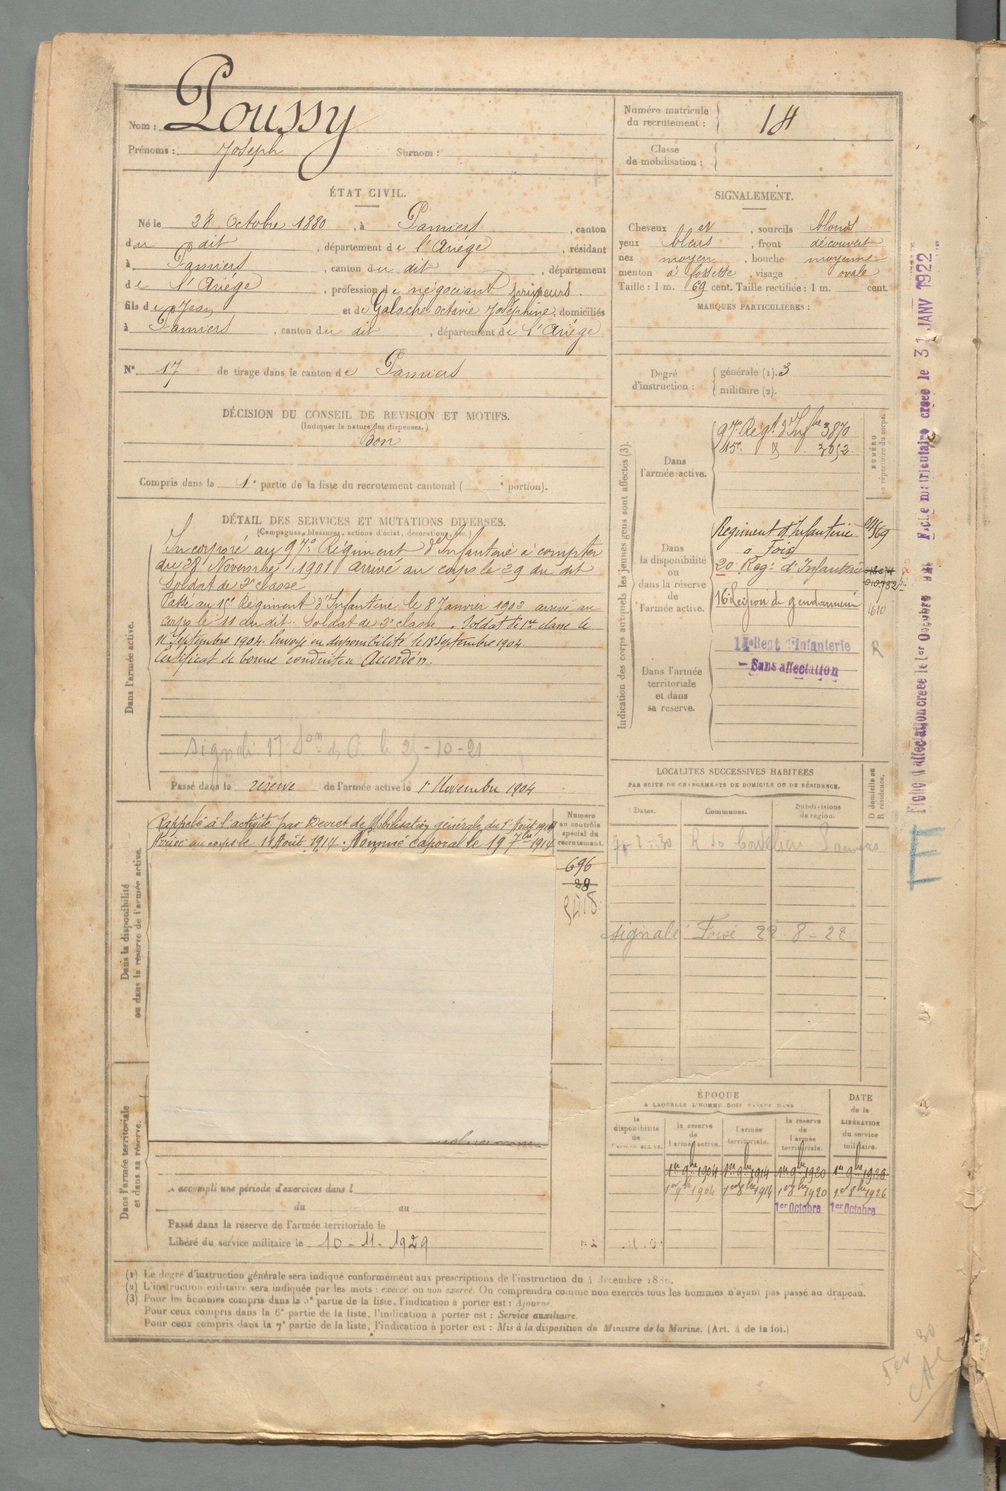 Nom : Poussy
Prénoms : Joseph Surnom :
ÉTAT CIVIL.
Né le 28 Octobre 1880, à Pamiers, canton
du dit, département de l'Ariège, résidant
à Pamiers, canton du dit, département
de l'Ariège, profession de négociant primeurs
fils de Jean et de Galoche Octavie Joséphine, domiciliés
à Pamiers, canton du dit, département de l'Ariège
N° 17 de tirage dans le canton de Pamiers
DÉCISION DU CONSEIL DE REVISION ET MOTIFS.
(Indiquer la nature des dispenses.)
Bon
Compris dans la 1e partie de la liste du recrutement cantonal ( e portion).
DÉTAIL DES SERVICES ET MUTATIONS DIVERSES.
(Campagnes, blessures, actions d'éclat, décorations, etc.)
Dans l'armée active.
Incorporé au 97e Régiment d'Infanterie à compter
du 28 Novembre 1901 arrivé au corps le 29 du dit
Soldat de 2e classe
Passé au 15e Régiment d'Infanterie le 8 Janvier 1902 arrivé au
corps le 11 du dit. Soldat de 2e classe. Soldat de 1re classe le
11 Septembre 1904. Envoyé en disponibilité le 18 Septembre 1904.
Certificat de bonne conduite Accordé.
signalé 17 le 25-10-21
Passé dans la réserve de l'armée active le 1er Novembre 1904
Dans la disponibilité
ou dans la réserve de l'armée active.
Rappelé à l'activité par Décret de Mobilisation générale du 1er Août 1914
Arrivé au corps le 11 Août 1914. Nommé Caporal le 19 7bre 1914
Numéro
au contrôle
spécial du
recrutement.
696
28
Dans l'armée territoriale
et dans sa réserve.
A accompli une période d'exercices dans l
du au
Passé dans la réserve de l'armée territoriale le
Libéré du service militaire le 10-11-1929
Numéro matricule
du recrutement : 14
Classe
de mobilisation :
SIGNALEMENT.
Cheveux et, sourcils blonds
yeux bleus, front découvert
nez moyen, bouche moyenne
menton à fossette, visage ovale
Taille : 1 m. 69 cent. Taille rectifiée : 1 m. cent.
MARQUES PARTICULIÈRES :
Degré
d'instruction :
générale (1). 3
militaire (2).
Indication des corps auxquels les jeunes gens sont affectés (3).
Dans
l'armée active.
97e Régt d'Infie 3870
NUMÉRO
au répertoire du corps.
Dans
la disponibilité
ou
dans la réserve
de
l'armée active.
Régiment d'Infanterie
à Foix
20 Rég. d'Infanterie
16e Légion de gendarmerie
1610
Dans l'armée
territoriale
et dans
sa réserve.
14e Regt d'Infanterie
- Sans affectation
R
LOCALITÉS SUCCESSIVES HABITÉES
PAR SUITE DE CHANGEMENTS DE DOMICILE OU DE RÉSIDENCE.
Dates. Communes. Subdivisions
de région.
D domicile ou
R résidence.
R des Cordeliers Pamiers
signalé Foix 22-8-22
ÉPOQUE
À LAQUELLE L'HOMME DOIT PASSER DANS
la
disponibilité
de
l'armée active.
la réserve
de
l'armée active.
l'armée
territoriale.
la réserve
de
l'armée
territoriale.
DATE
de la
LIBÉRATION
du service
militaire.
1er 9bre 1904 1er 9bre 1914 1er 9bre 1920 1er 9bre 1926
1er 8bre 1904 1er 8bre 1914 1er 8bre 1920 1er 8bre 1926
1er Octobre 1er Octobre
(1) Le degré d'instruction générale sera indiqué conformément aux prescriptions de l'instruction du 4 décembre 1889.
(2) L'instruction militaire sera indiquée par les mots : exercé ou non exercé. On comprendra comme non exercés tous les hommes n'ayant pas passé au drapeau.
(3) Pour les hommes compris dans la 5e partie de la liste, l'indication à porter est : Ajourné.
Pour ceux compris dans la 6e partie de la liste, l'indication à porter est : Service auxiliaire.
Pour ceux compris dans la 7e partie de la liste, l'indication à porter est : Mis à la disposition du Ministre de la Marine. (Art. 4 de la loi.)
Fiche d'affectation créée le 1er Octobre
Fiche matriculaire créée le 31 JANV 1922